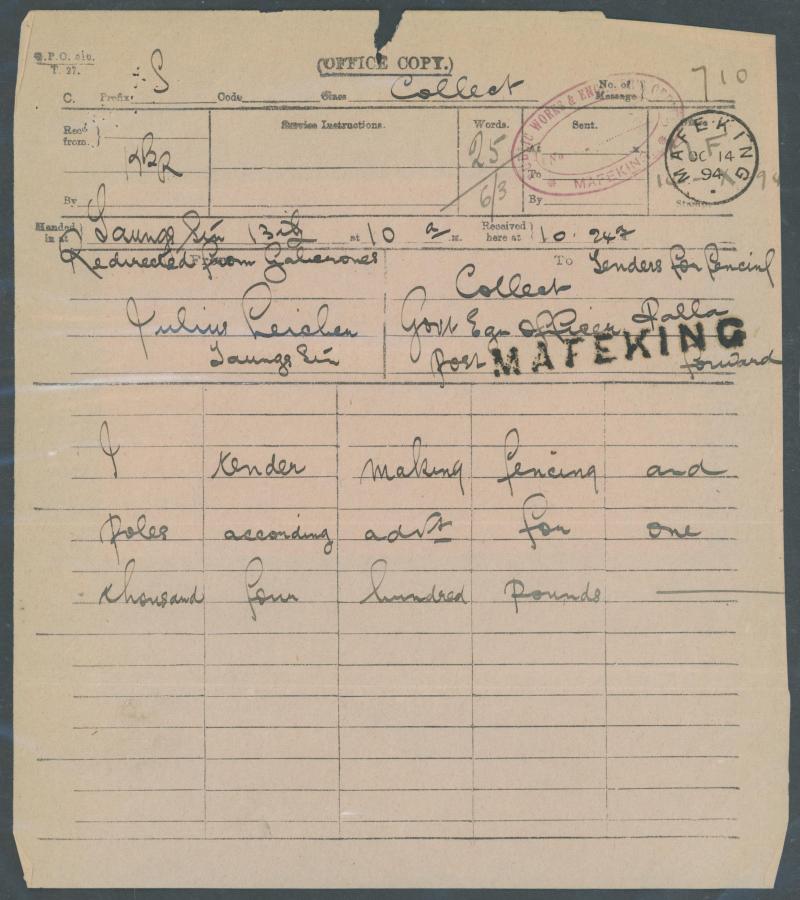 G.P.O. etc.
T. 27.
(OFFICE COPY.)
C. Prefix S Code Class Collect No. of Message 710
Recd from HBR
By
Service Instructions.
Words.
25
6/3
Sent.
At
To
By
PUBLIC WORKS & ENGINEERS
MAFEKING
MAFEKING
OC 14
94
Handed in at Taungs 13th at 10 a M. Received here at 10.24
Redirected from Gaberones
From
Julius
To Tenders for fencing
Collect
Govt officer Palla
post MAFEKING forward
I tender making fencing and
poles according advt for one
thousand four hundred pounds